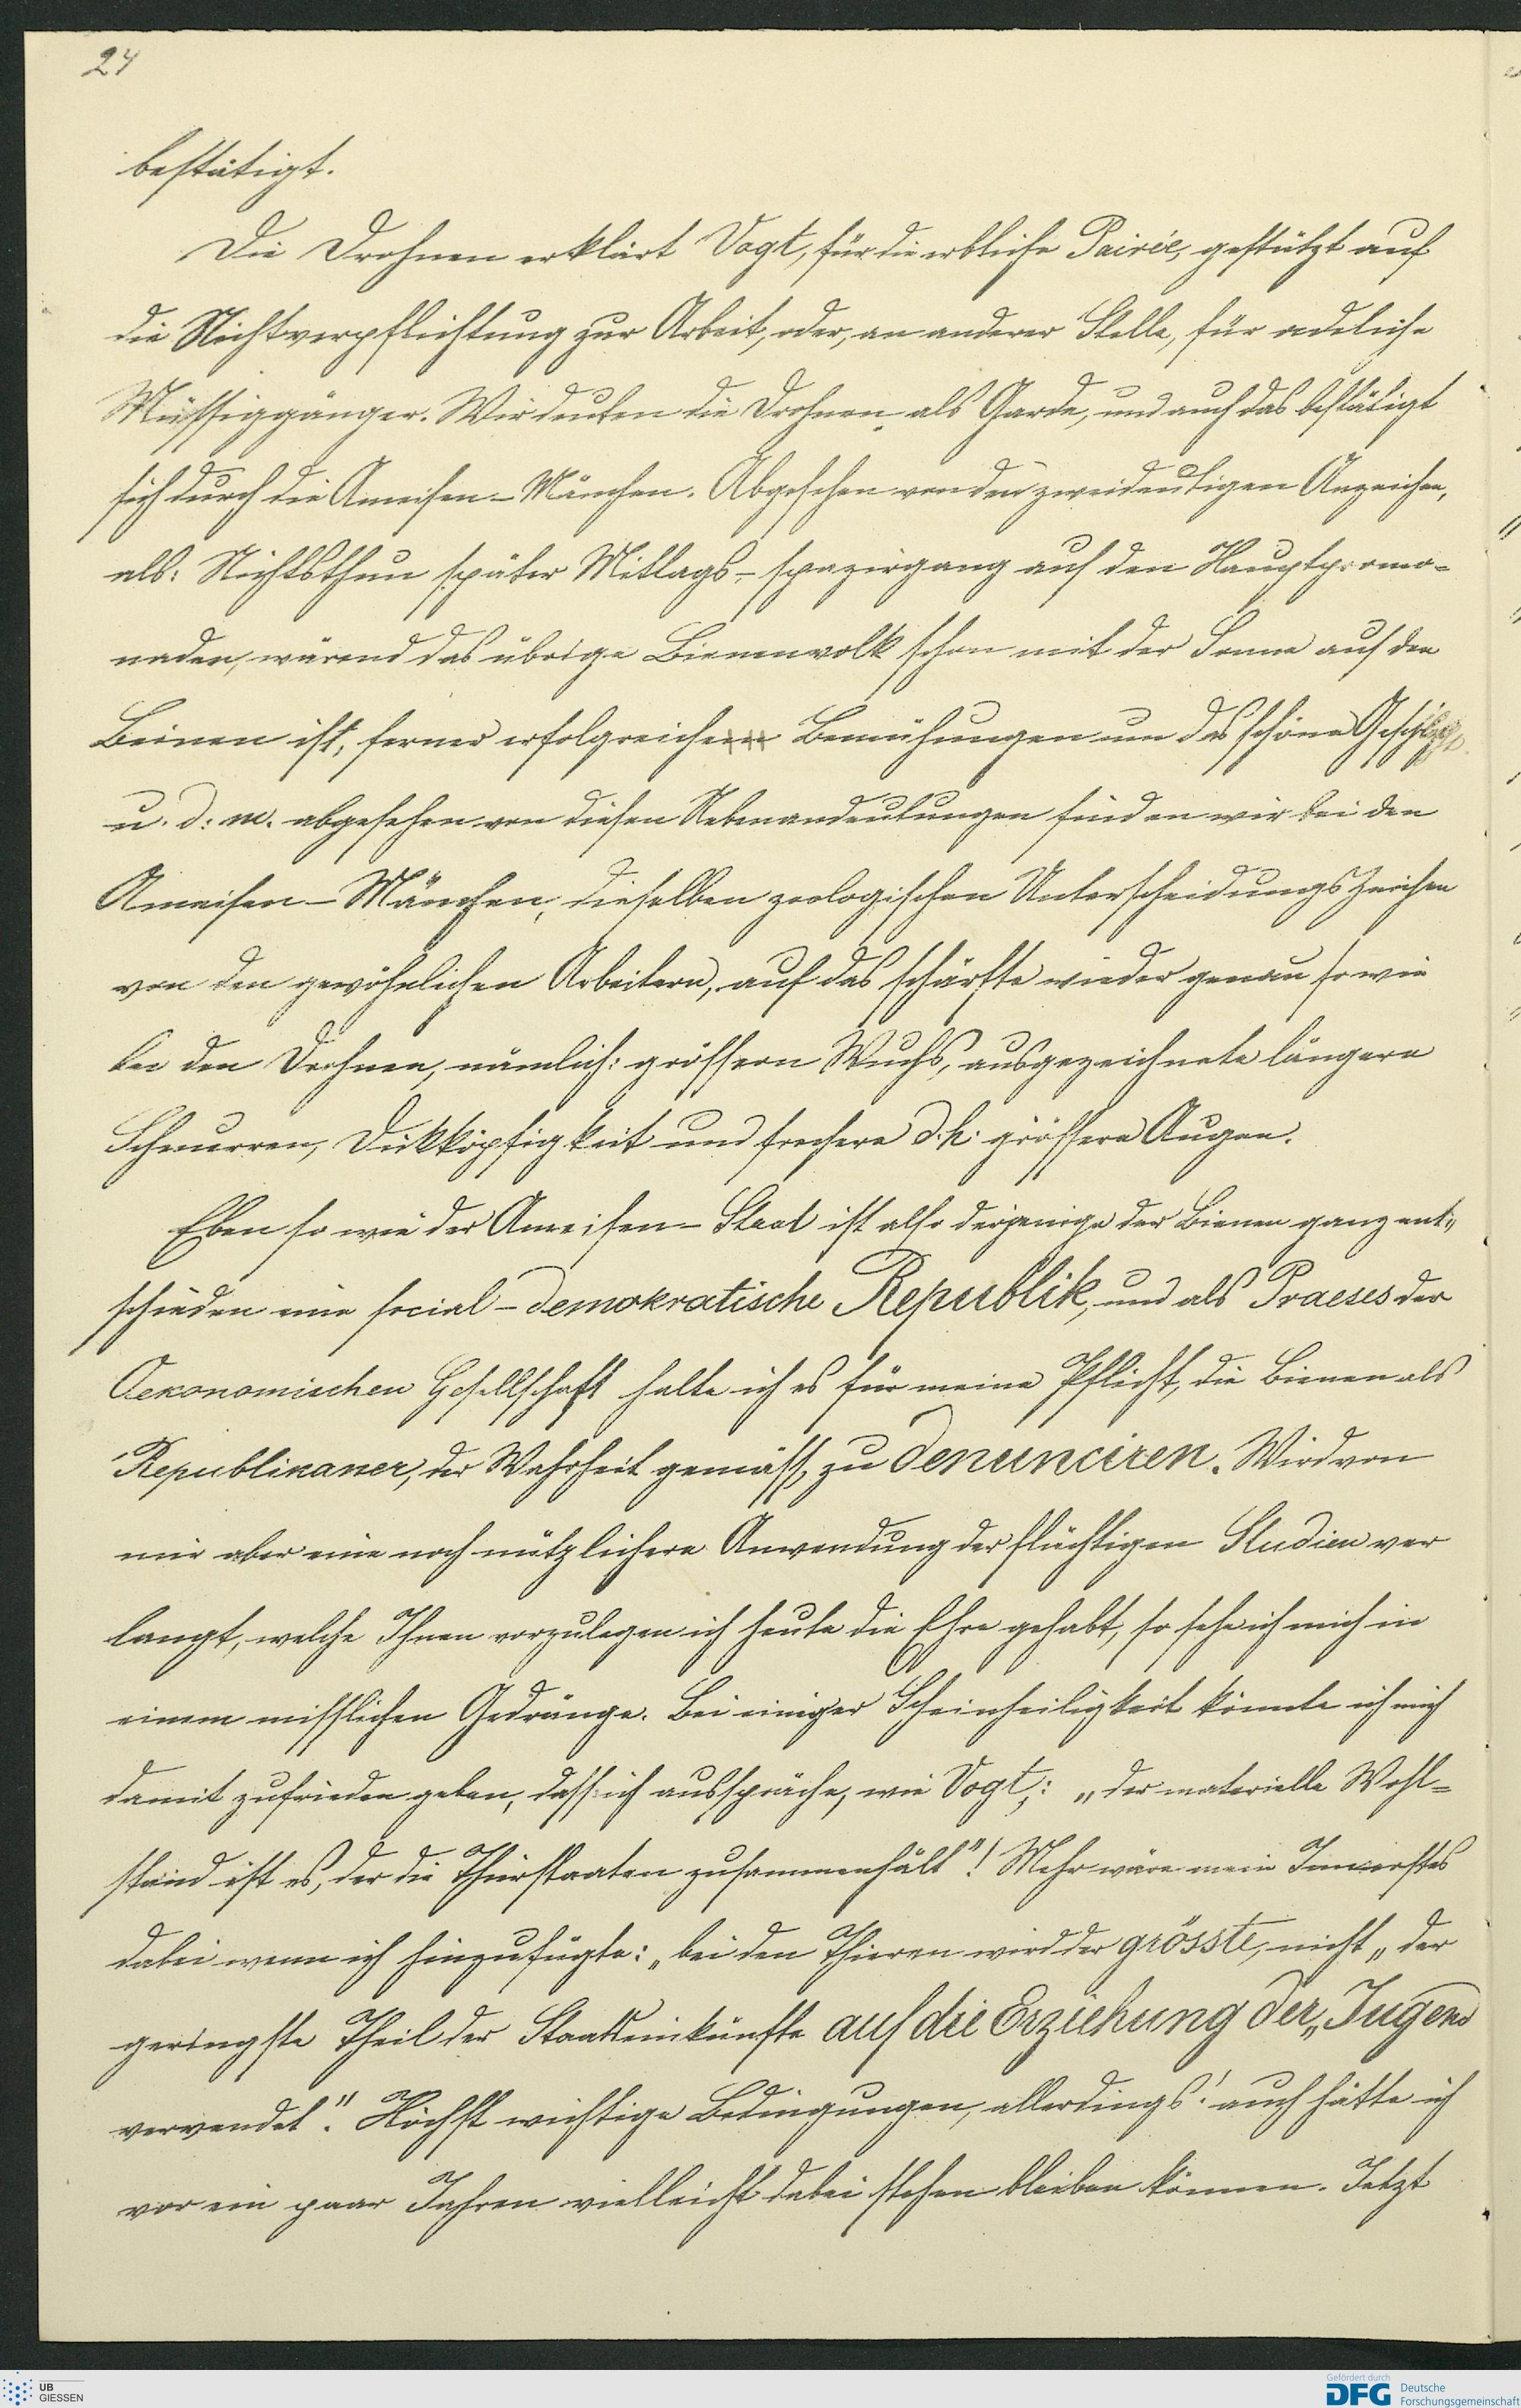 24
bestätigt.
Die Drohnen erklärt Vogt, für die erbliche Pairie, gestützt auf
die Nichtverpflichtung zur Arbeit, oder, an anderer Stelle, für adeliche
Müssiggänger. Wir deuten die Drohnen als Garde, und auch das bestätigt
sich durch die Ameisen-Mänchen. Abgesehen von den zweideutigen Anzeichen,
als: Nichtsthun später Mittags-spazirgang auf den Hauptpromo-
naden, wärend das übrige Bienenvolk schon mit der Sonne auf den
Beinen ist, ferner erfolgreichen Bemühungen um das schöne Geschlecht
u. d. m. abgesehen von diesen Nebenandeutungen finden wir bei den
Ameisen-Mänchen, dieselben zoologischen Unterscheidungszeichen
von den gewöhnlichen Arbeitern, auf das schärfste wieder genau so wie
bei den Drohnen, nämlich: grössern Wuchs, ausgezeichnete längere
Schnurren, Dickköpfigkeit und frechere d. h. grössere Augen.
Eben so wie der Ameisen-Staat ist also derjenige der Bienen ganz ent„
schieden eine social-demokratische Republik, und als Praeses der
Oekonomischen Gesellschaft halte ich es für meine Pflicht, die Bienen als
Republikaner, der Wahrheit gemäss, zu denunciren. Wird von
mir aber eine noch nützlichere Anwendung der flüchtigen Studien ver
langt, welche Ihnen vorzulegen ich heute die Ehre gehabt, so sehe ich mich in
einem misslichen Gedränge. Bei einiger Scheinheiligkeit könnte ich mich
damit zufrieden geben, dass ich ausspräche, wie Vogt,: „der materielle Wohl-
stand ist es, der die Thierstaaten zusammenhält"! Mehr wäre mein Innerstes
dabei wenn ich hinzufügte: „bei den Thieren wird der grösste, nicht „der
geringste Theil der Staatseinkünfte auf die Erziehung der „Jugend
verwendet". Höchst wichtige Bedingungen, allerdings! auch hätte ich
vor ein paar Jahren vielleicht dabei stehen bleiben können. Jetzt
UB
GIESSEN
Gefördert durch
DFG Deutsche
Forschungsgemeinschaft